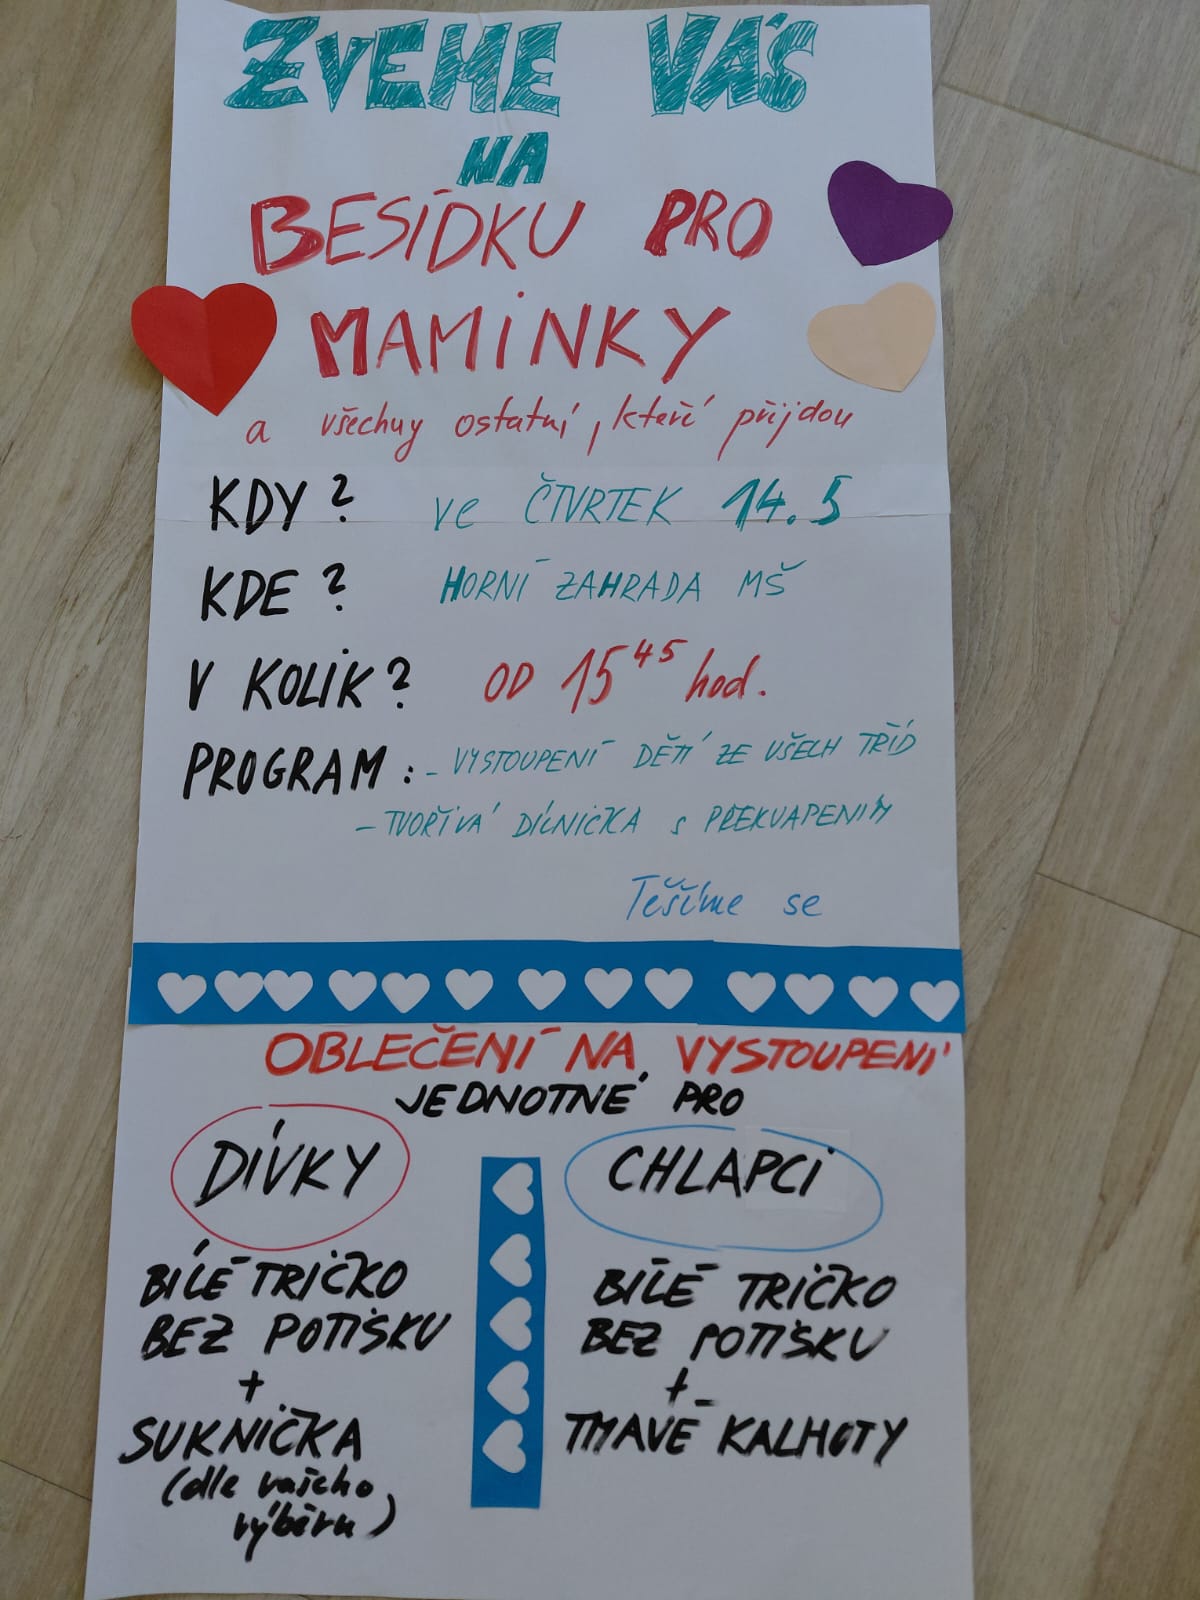 ZVEME VÁS
NA
BESÍDKU PRO
MAMINKY
a všechny ostatní, kteří přijdou
KDY? ve ČTVRTEK 14.5
KDE? HORNÍ ZAHRADA MŠ
V KOLIK? OD 15⁴⁵ hod.
PROGRAM: - VYSTOUPENÍ DĚTÍ ZE VŠECH TŘÍD
- TVOŘIVÁ DÍLNIČKA s PŘEKVAPENÍM
Těšíme se
OBLEČENÍ NA VYSTOUPENÍ
JEDNOTNÉ PRO
DÍVKY
BÍLÉ TRIČKO
BEZ POTISKU
+
SUKNIČKA
(dle vašeho
výběru)
CHLAPCI
BÍLÉ TRIČKO
BEZ POTISKU
+
TMAVÉ KALHOTY